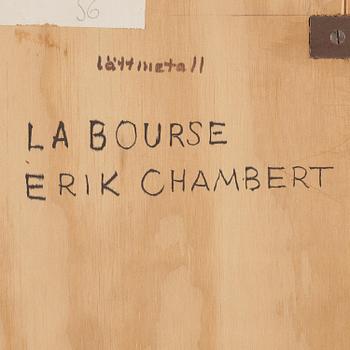 56
lättmetall
LA BOURSE
ERIK CHAMBERT